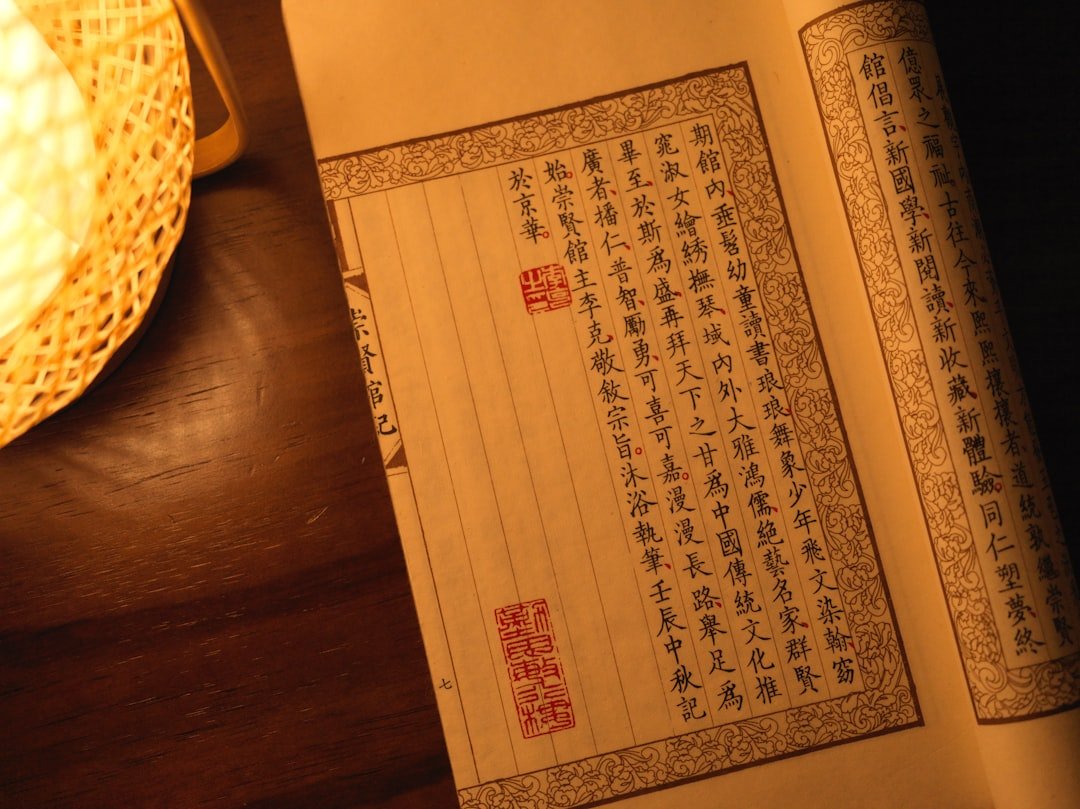 億眾之福祉。古往今來、熙熙攘攘者、道統敦繼崇賢
館倡言、新國學、新閱讀、新收藏、新體驗。同仁塑夢、終
期館內、垂髫幼童讀書琅琅、舞象少年飛文染翰、窈
窕淑女繪綉撫琴、域內外大雅鴻儒、絕藝名家、群賢
畢至、於斯爲盛。再拜天下之甘爲中國傳統文化推
廣者、播仁、普智、勵勇、可喜可嘉。漫漫長路、舉足爲
始。崇賢館主李克、敬敘宗旨。沐浴執筆、壬辰中秋記
於京華。
崇賢館記
七